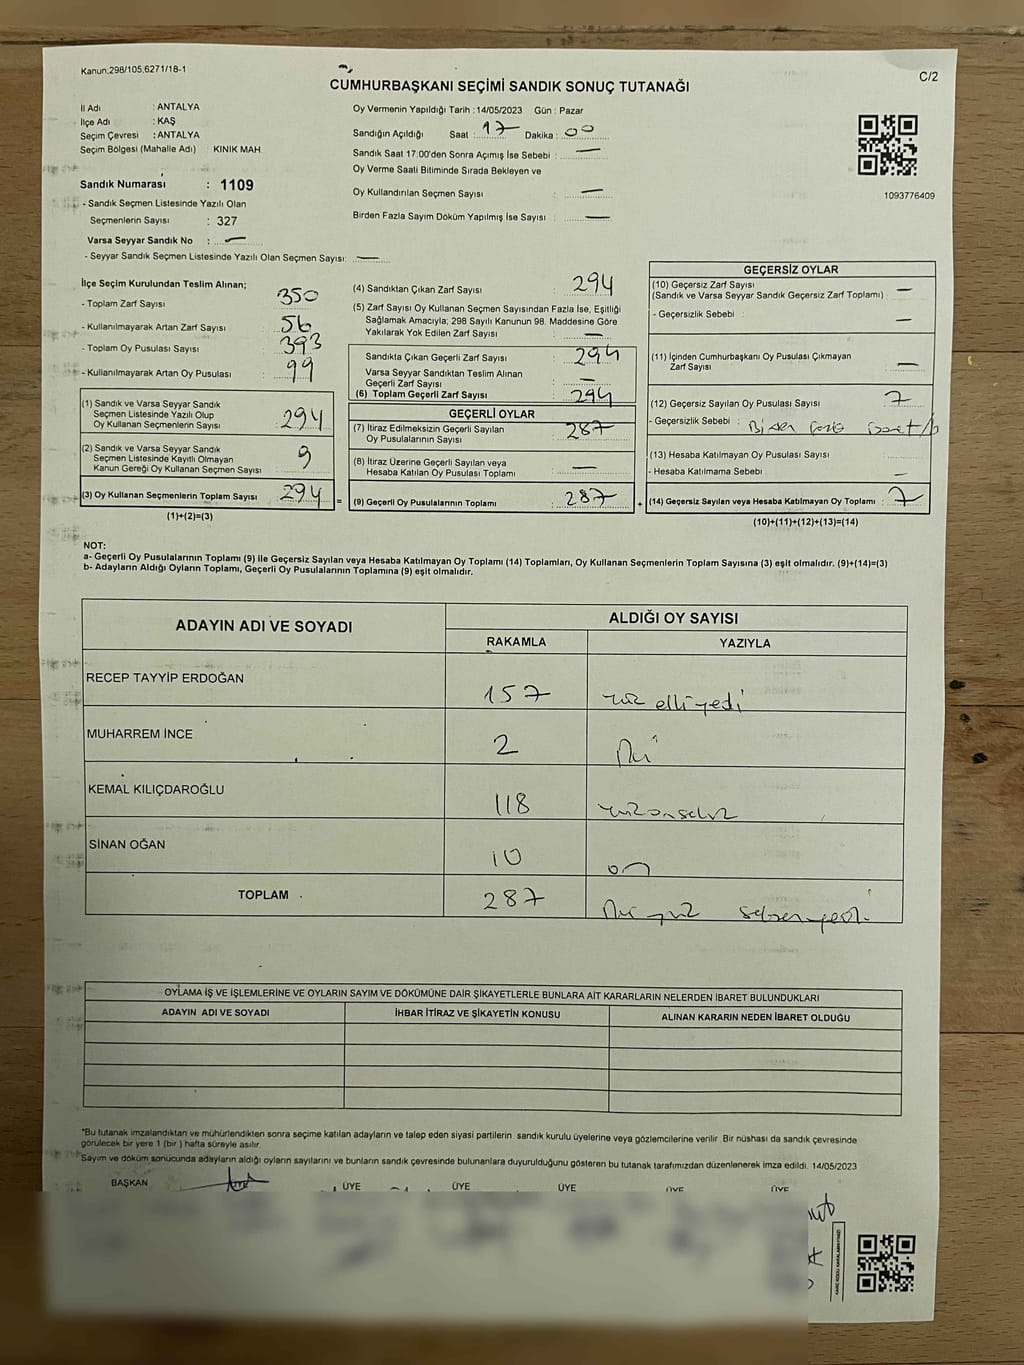 Kanun:298/105,6271/18-1
C/2
CUMHURBAŞKANI SEÇİMİ SANDIK SONUÇ TUTANAĞI
İl Adı : ANTALYA
İlçe Adı : KAŞ
Seçim Çevresi : ANTALYA
Seçim Bölgesi (Mahalle Adı) KINIK MAH.
Sandık Numarası : 1109
- Sandık Seçmen Listesinde Yazılı Olan
Seçmenlerin Sayısı : 327
Varsa Seyyar Sandık No : —
- Seyyar Sandık Seçmen Listesinde Yazılı Olan Seçmen Sayısı: —
Oy Vermenin Yapıldığı Tarih : 14/05/2023 Gün : Pazar
Sandığın Açıldığı Saat : 17 Dakika : 00
Sandık Saat 17:00'den Sonra Açımış İse Sebebi : —
Oy Verme Saati Bitiminde Sırada Bekleyen ve
Oy Kullandırılan Seçmen Sayısı : —
Birden Fazla Sayım Döküm Yapılmış İse Sayısı : —
1093776409
İlçe Seçim Kurulundan Teslim Alınan;
- Toplam Zarf Sayısı : 350
- Kullanılmayarak Artan Zarf Sayısı : 56
- Toplam Oy Pusulası Sayısı : 393
- Kullanılmayarak Artan Oy Pusulası : 99
(1) Sandık ve Varsa Seyyar Sandık
Seçmen Listesinde Yazılı Olup
Oy Kullanan Seçmenlerin Sayısı : 294
(2) Sandık ve Varsa Seyyar Sandık
Seçmen Listesinde Kayıtlı Olmayan
Kanun Gereği Oy Kullanan Seçmen Sayısı : 9
(3) Oy Kullanan Seçmenlerin Toplam Sayısı : 294
(1)+(2)=(3)
=
(4) Sandıktan Çıkan Zarf Sayısı : 294
(5) Zarf Sayısı Oy Kullanan Seçmen Sayısından Fazla İse, Eşitliği
Sağlamak Amacıyla; 298 Sayılı Kanunun 98. Maddesine Göre
Yakılarak Yok Edilen Zarf Sayısı : —
Sandıkta Çıkan Geçerli Zarf Sayısı : 294
Varsa Seyyar Sandıktan Teslim Alınan
Geçerli Zarf Sayısı : —
(6) Toplam Geçerli Zarf Sayısı : 294
GEÇERLİ OYLAR
(7) İtiraz Edilmeksizin Geçerli Sayılan
Oy Pusulalarının Sayısı : 287
(8) İtiraz Üzerine Geçerli Sayılan veya
Hesaba Katılan Oy Pusulası Toplamı : —
(9) Geçerli Oy Pusulalarının Toplamı : 287
+
GEÇERSİZ OYLAR
(10) Geçersiz Zarf Sayısı
(Sandık ve Varsa Seyyar Sandık Geçersiz Zarf Toplamı) : —
- Geçersizlik Sebebi : —
(11) İçinden Cumhurbaşkanı Oy Pusulası Çıkmayan
Zarf Sayısı : —
(12) Geçersiz Sayılan Oy Pusulası Sayısı : 7
- Geçersizlik Sebebi : Birden fazla
(13) Hesaba Katılmayan Oy Pusulası Sayısı :
- Hesaba Katılmama Sebebi : —
(14) Geçersiz Sayılan veya Hesaba Katılmayan Oy Toplamı : 7
(10)+(11)+(12)+(13)=(14)
NOT:
a- Geçerli Oy Pusulalarının Toplamı (9) ile Geçersiz Sayılan veya Hesaba Katılmayan Oy Toplamı (14) Toplamları, Oy Kullanan Seçmenlerin Toplam Sayısına (3) eşit olmalıdır. (9)+(14)=(3)
b- Adayların Aldığı Oyların Toplamı, Geçerli Oy Pusulalarının Toplamına (9) eşit olmalıdır.
ADAYIN ADI VE SOYADI ALDIĞI OY SAYISI
RAKAMLA YAZIYLA
RECEP TAYYİP ERDOĞAN 157 yüz elli yedi
MUHARREM İNCE 2 iki
KEMAL KILIÇDAROĞLU 118 yüzonsekiz
SİNAN OĞAN 10 on
TOPLAM 287 iki yüz seksen yedi
OYLAMA İŞ VE İŞLEMLERİNE VE OYLARIN SAYIM VE DÖKÜMÜNE DAİR ŞİKAYETLERLE BUNLARA AİT KARARLARIN NELERDEN İBARET BULUNDUKLARI
ADAYIN ADI VE SOYADI İHBAR İTİRAZ VE ŞİKAYETİN KONUSU ALINAN KARARIN NEDEN İBARET OLDUĞU
*Bu tutanak imzalandıktan ve mühürlendikten sonra seçime katılan adayların ve talep eden siyasi partilerin sandık kurulu üyelerine veya gözlemcilerine verilir. Bir nüshası da sandık çevresinde
görülecek bir yere 1 (bir ) hafta süreyle asılır.
Sayım ve döküm sonucunda adayların aldığı oyların sayılarını ve bunların sandık çevresinde bulunanlara duyurulduğunu gösteren bu tutanak tarafımızdan düzenlenerek imza edildi. 14/05/2023
BAŞKAN ÜYE ÜYE ÜYE ÜYE ÜYE